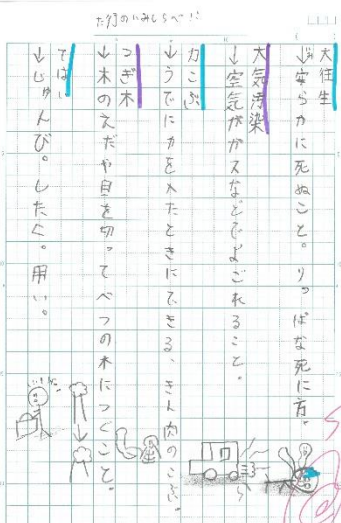 た行のいみしらべ!!
大往生
→安らかに死ぬこと。りっぱな死に方。
大気汚染
→空気がガスなどでよごれること。
力こぶ
→うでに力を入れたときにできる、きん肉のこぶ。
つぎ木
→木のえだや皮を切ってべつの木につぐこと。
てはい
→じゅんび。したく。用い。